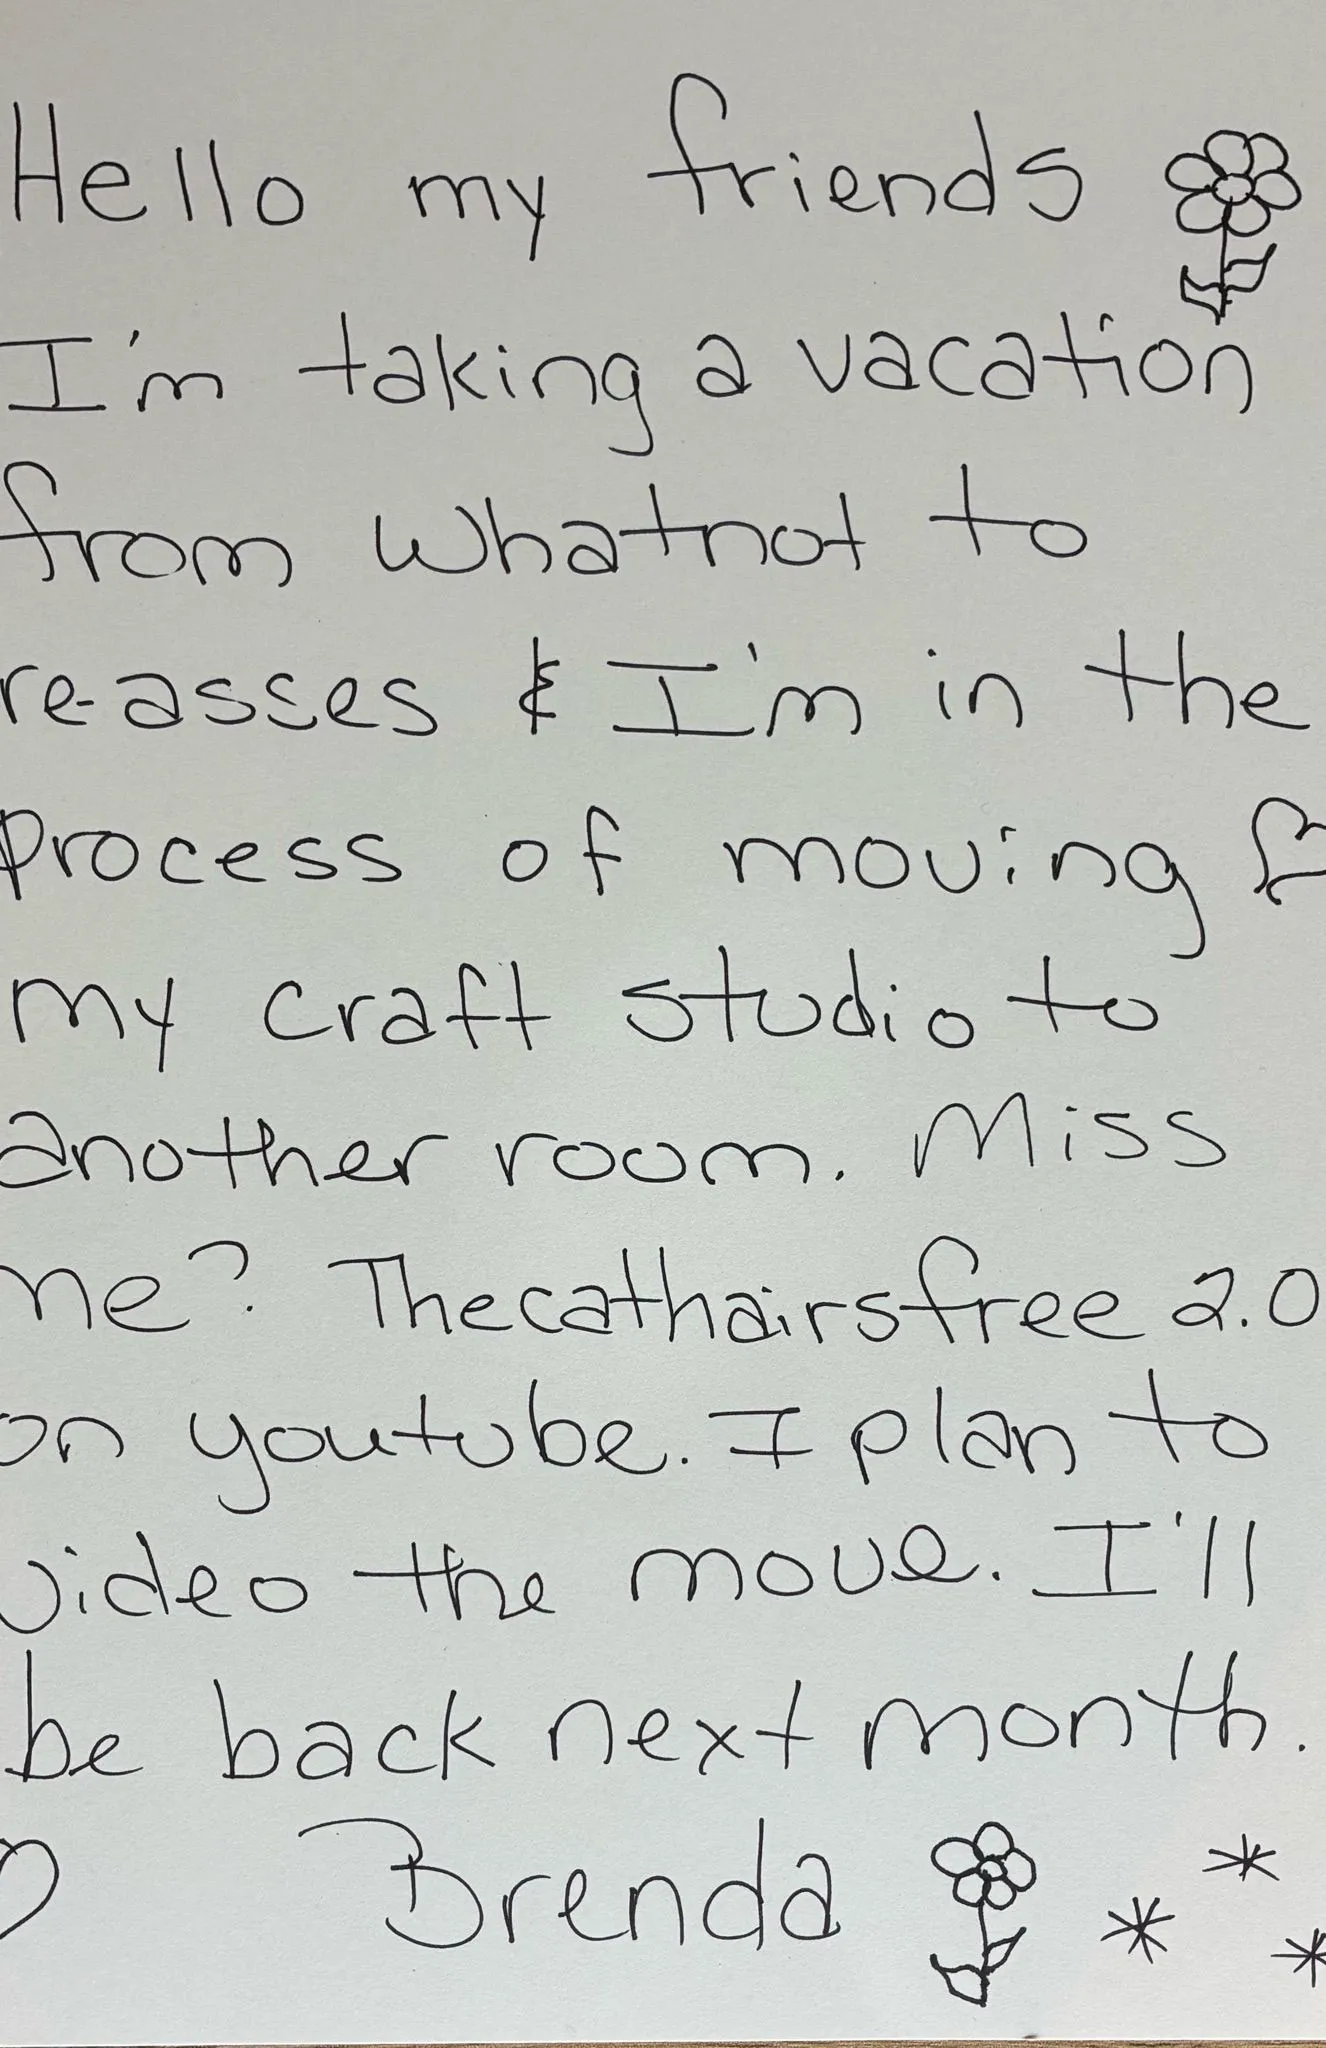 Hello my friends
I'm taking a vacation
from whatnot to
re-asses & I'm in the
process of moving
my craft studio to
another room. Miss
me? Thecathairsfree 2.0
on youtube. I plan to
video the move. I'll
be back next month.
Brenda